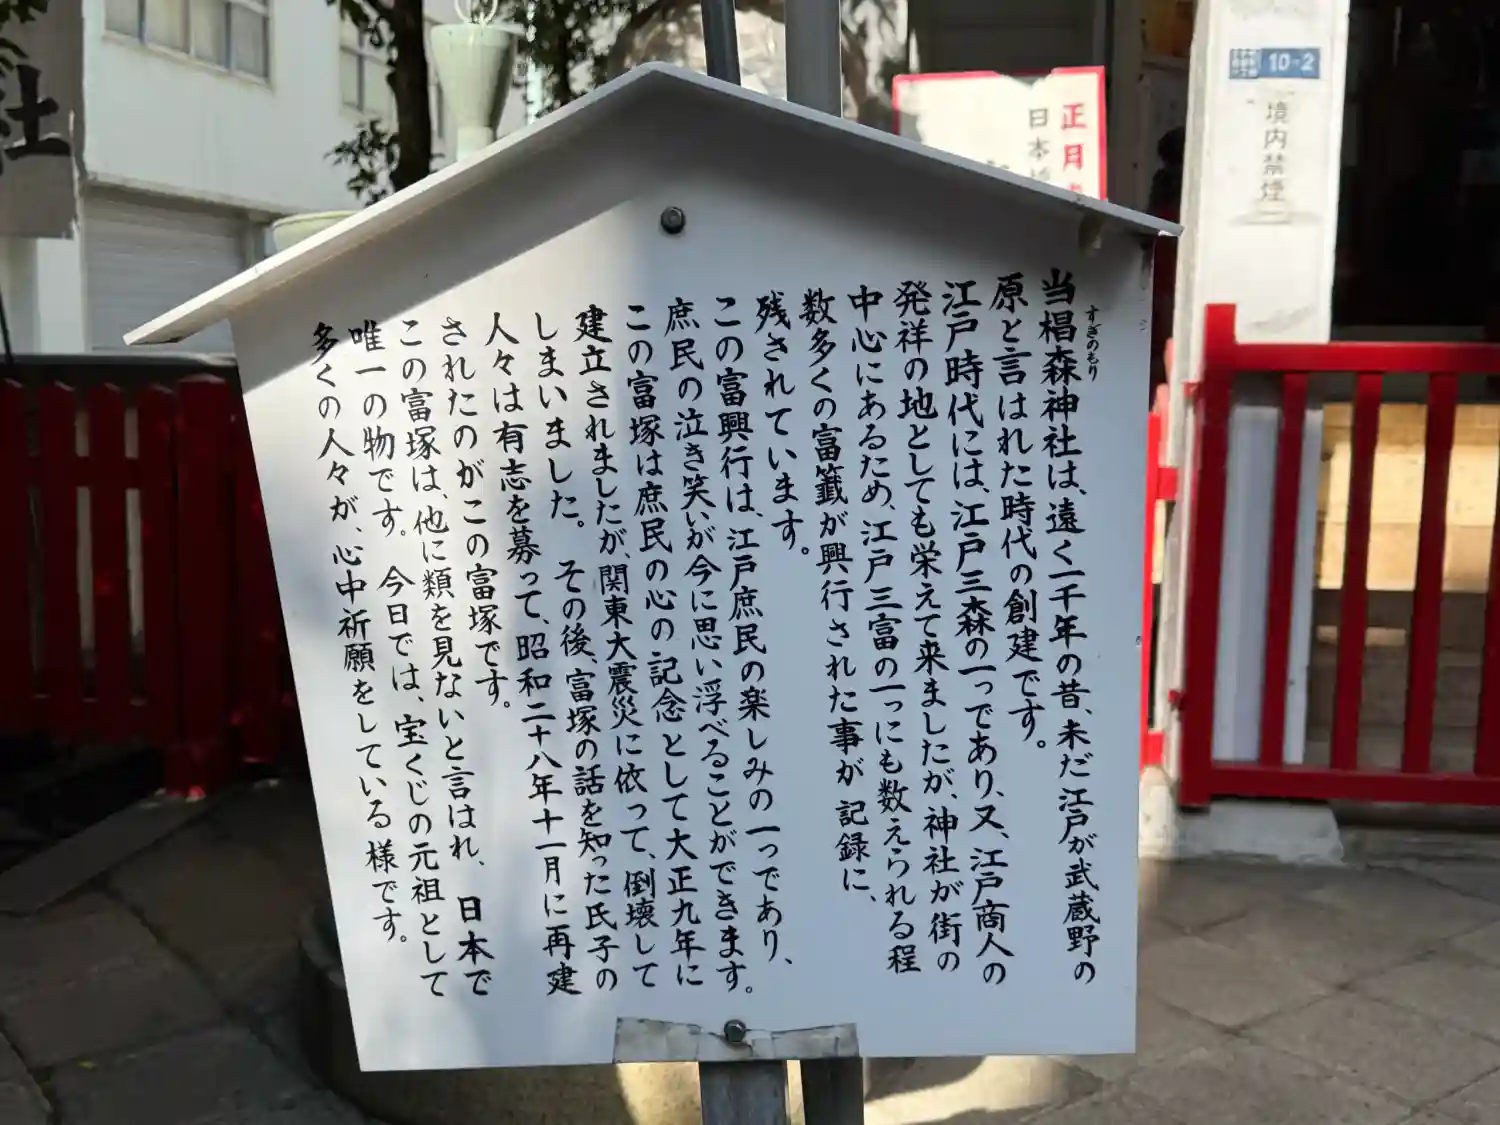 当椙森神社は、遠く一千年の昔、未だ江戸が武蔵野の
すぎのもり
原と言はれた時代の創建です。
江戸時代には、江戸三森の一つであり、又、江戸商人の
発祥の地としても栄えて来ましたが、神社が街の
中心にあるため、江戸三富の一つにも数えられる程
数多くの富籤が興行された事が記録に、
残されています。
この富興行は、江戸庶民の楽しみの一つであり、
庶民の泣き笑いが今に思い浮べることができます。
この富塚は庶民の心の記念として大正九年に
建立されましたが、関東大震災に依って、倒壊して
しまいました。その後、富塚の話を知った氏子の
人々は有志を募って、昭和二十八年十一月に再建
されたのがこの富塚です。
この富塚は、他に類を見ないと言はれ、日本で
唯一の物です。今日では、宝くじの元祖として
多くの人々が、心中祈願をしている様です。
正月
日本橋
10-2
境内禁煙
社